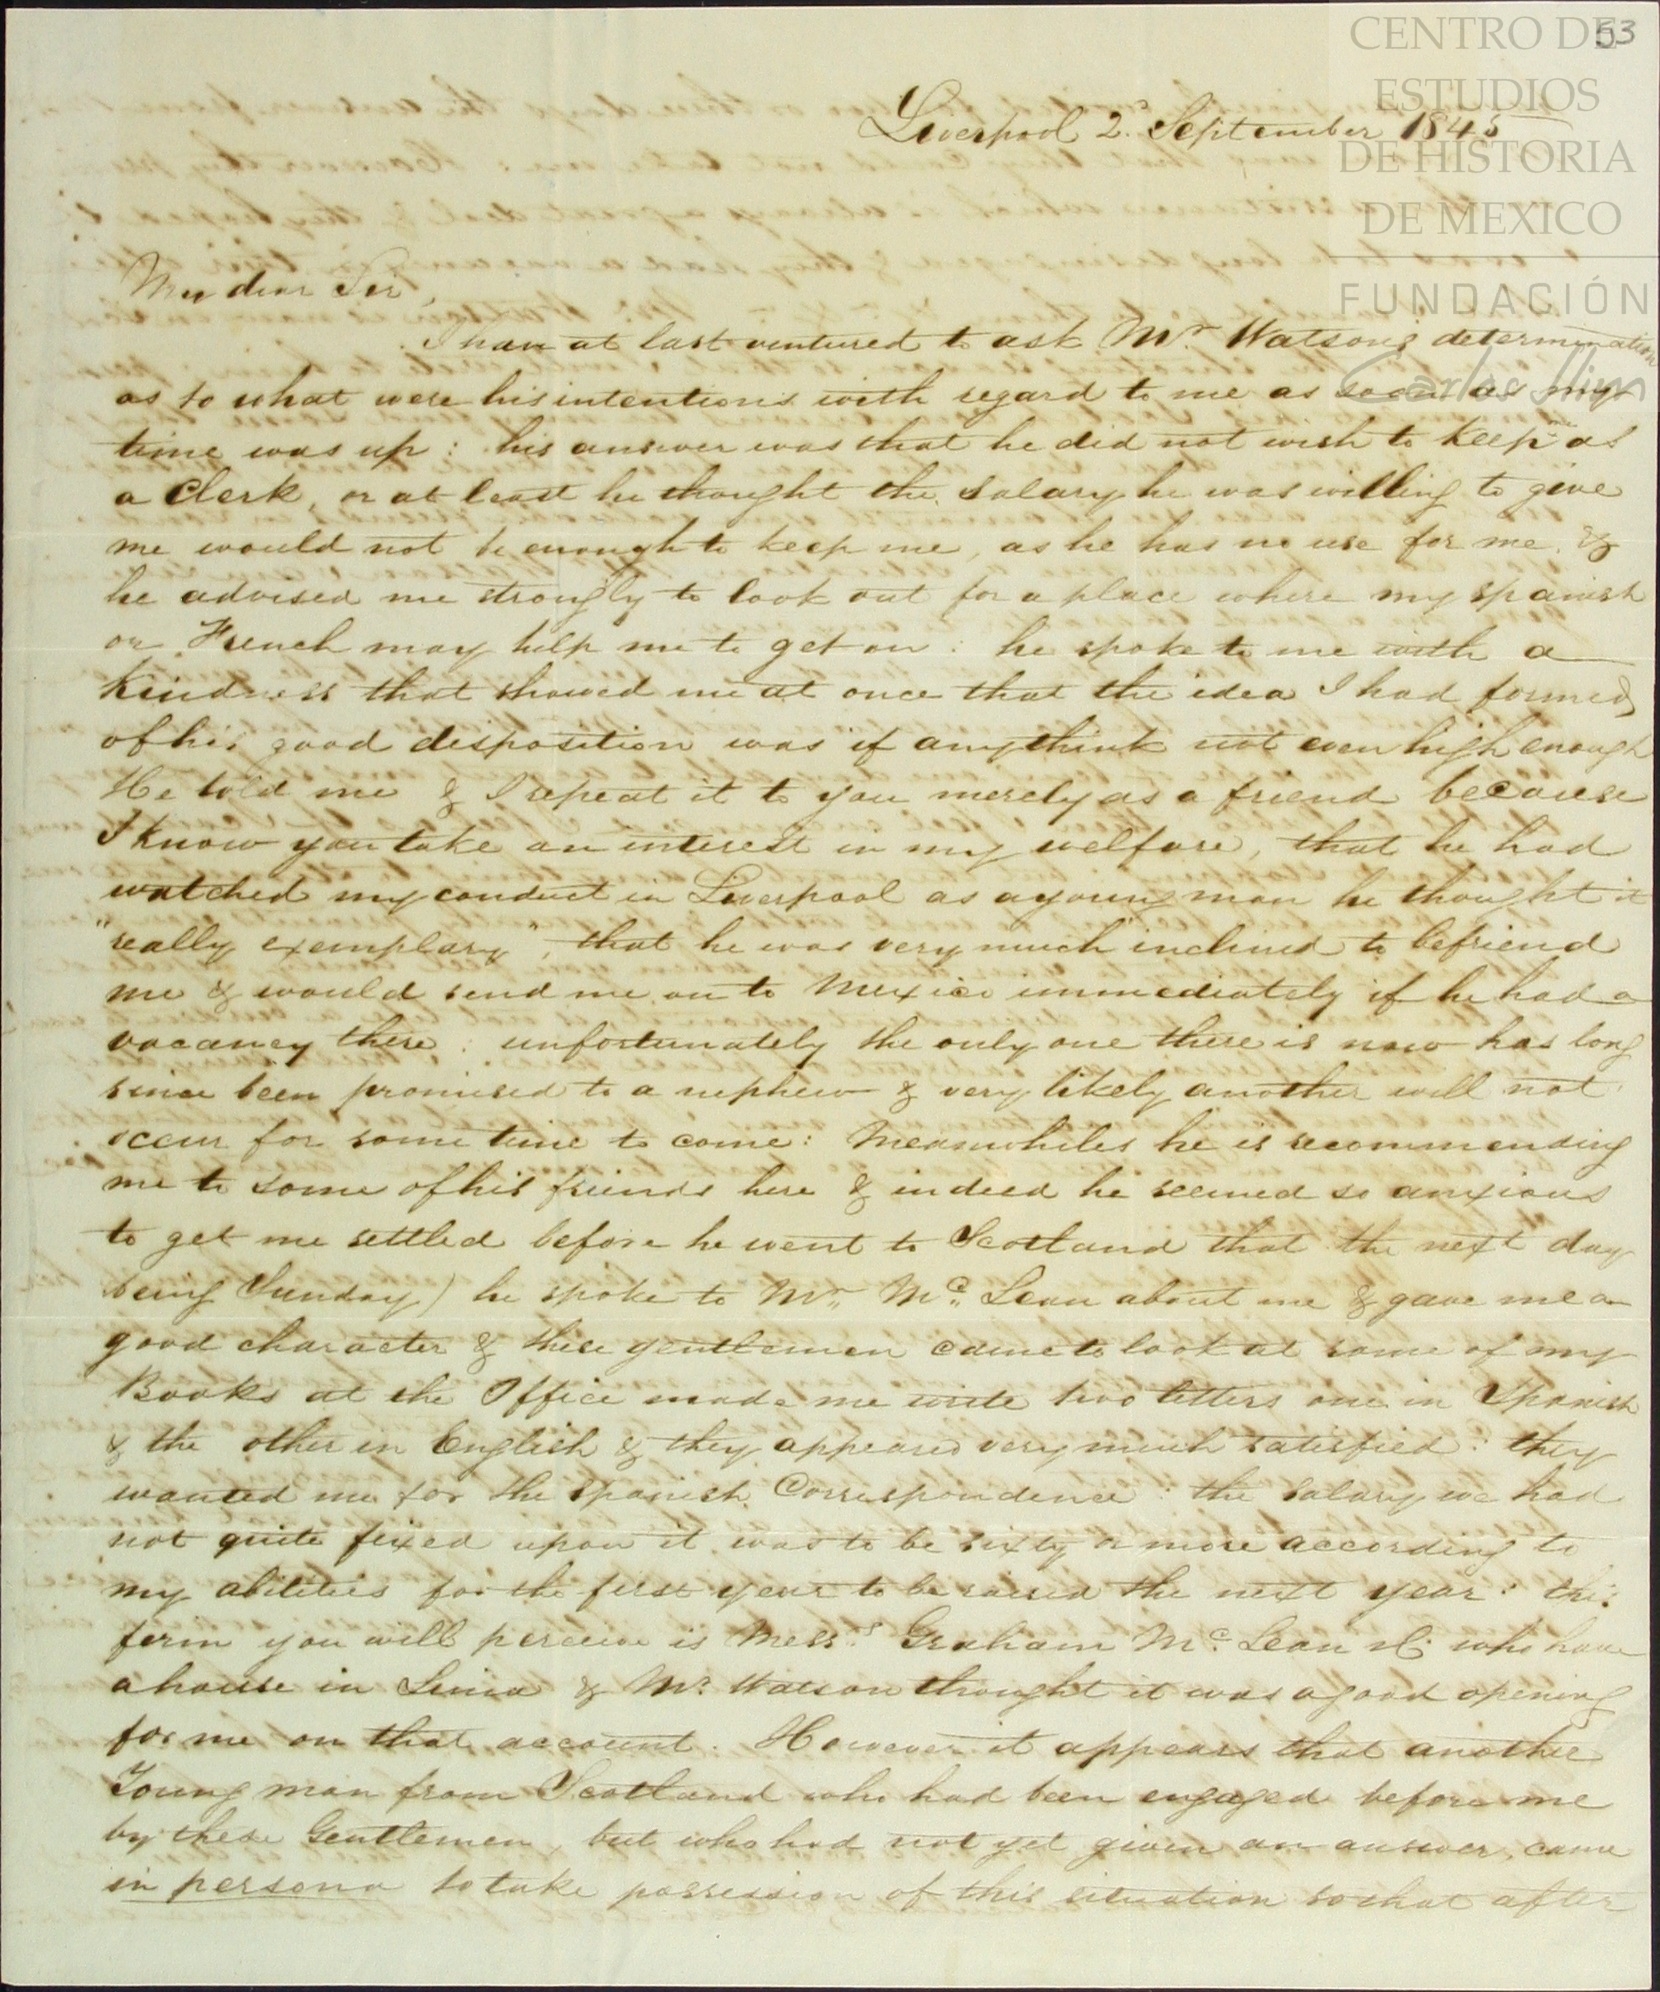 53
CENTRO DE
ESTUDIOS
DE HISTORIA
DE MEXICO
FUNDACIÓN
Carlos Slim
Liverpool 2d September 1845
My dear Sir,
I have at last ventured to ask Mr Watson's determination
as to what were his intentions with regard to me as soon as my
time was up: his answer was that he did not wish to keep me as
a Clerk, or at least he thought the salary he was willing to give
me would not be enough to keep me, as he has no use for me, &
he advised me strongly to look out for a place where my spanish
or French may help me to get on: he spoke to me with a
Kindness that showed me at once that the idea I had formed
of his good disposition was if anythink not even high enough
He told me & I repeat it to you merely as a friend because
I know you take an interest in my welfare, that he had
watched my conduct in Liverpool as a young man he thought it
"really exemplary", that he was very much inclined to befriend
me & would send me on to Mexico immediately if he had a
vacancy there: unfortunately the only one there is now has long
since been promised to a nephew & very likely another will not
occur for some time to come: Meanwhiles he is recommending
me to some of his friends here & indeed he seemed so anxious
to get me settled before he went to Scotland that the next day
being Sunday) he spoke to Mr. Mc. Lean about me & gave me a
good character & these gentlemen came to look at some of my
Books at the Office made me write two letters one in Spanish
& the other in English & they appeared very much satisfied: they
wanted me for the spanish Correspondence: the salary we had
not quite fixed upon it was to be sixty or more according to
my abilities for the first year to be raised the next year: this
firm you will perceive is Messrs Graham Mc. Lean & Co who have
a house in Lima & Mr. Watson thought it was a good opening
for me on that account. However it appears that another
Young man from Scotland who had been engaged before me
by these Gentlemen, but who had not yet given an answer, came
in persona to take possession of this situation so that after